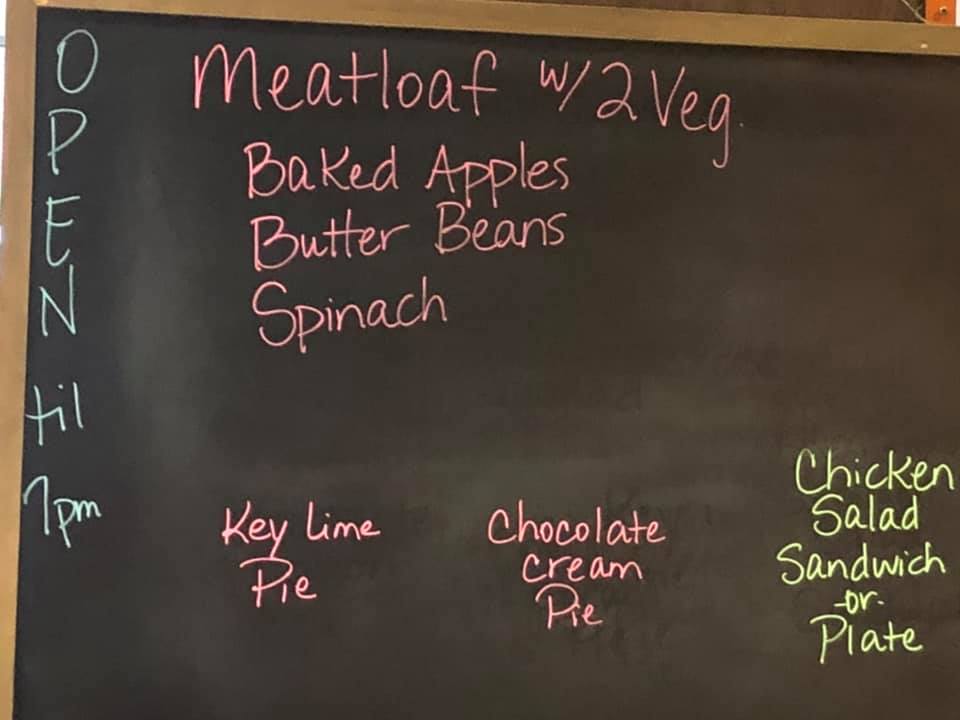 OPEN
til
7pm
Meatloaf w/ 2 Veg.
Baked Apples
Butter Beans
Spinach
Key Lime
Pie
Chocolate
cream
Pie
Chicken
Salad
Sandwich
-or-
Plate